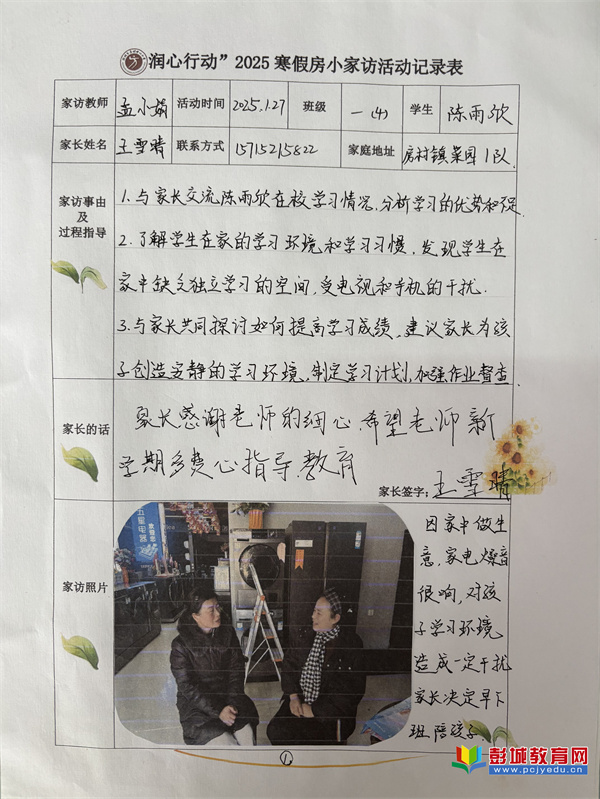 润心行动”2025寒假房小家访活动记录表
家访教师 孟小娟 活动时间 2025.1.27 班级 一(4) 学生 陈雨欣
家长姓名 王雪晴 联系方式 15715215822 家庭地址 房村镇菜园1队.
家访事由
及
过程指导
1.与家长交流陈雨欣在校学习情况,分析学习的优势和不足.
2.了解学生在家的学习环境和学习习惯,发现学生在
家中缺乏独立学习的空间,受电视和手机的干扰.
3.与家长共同探讨如何提高学习成绩,建议家长为孩
子创造安静的学习环境,制定学习计划,加强作业督查.
家长的话
家长感谢老师的细心,希望老师新
学期多费心指导、教育
家长签字: 王雪晴
家访照片
五星电器
因家中做生
意,家电噪音
很响,对孩
子学习环境
造成一定干扰
家长决定早下
班陪孩子
①
彭城教育网
www.pcjyedu.cn